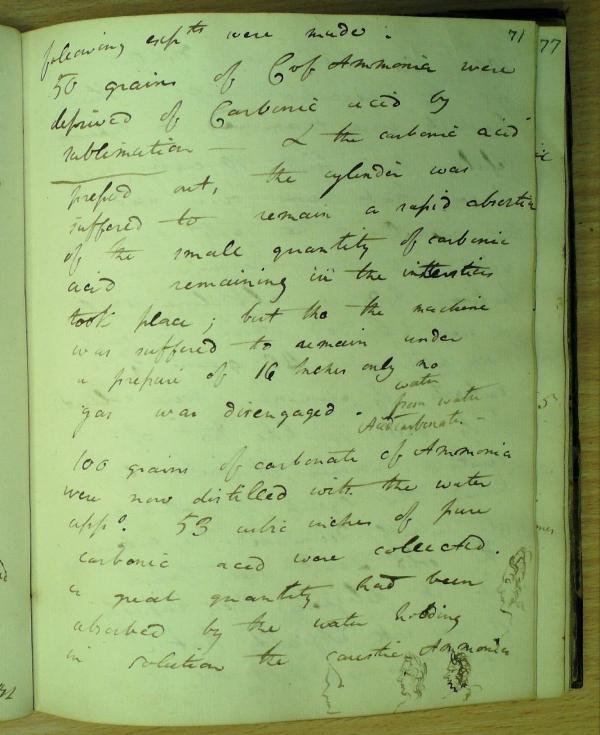 71
following exp<sup>ts</sup> were made:
50 grains of C of Ammonia were
deprived of Carbonic acid by
sublimation — & the carbonic acid
pressed out, the cylinder was
suffered to remain a rapid absorbtn
of the small quantity of carbonic
acid remaining in the interstices
took place; but tho the machine
was suffered to remain under
a pressure of 16 Inches only no
gas was disengaged.
water
from water
carbonate.
100 grains of carbonate of Ammonia
were now distilled with the water
app<sup>s</sup>. 53 cubic inches of pure
carbonic acid were collected.
a great quantity had been
absorbed by the water holding
in solution the caustic Ammonia
77